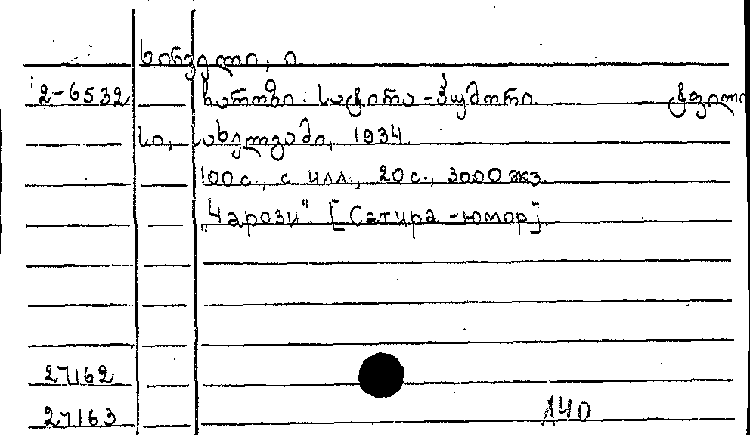 სონელი, ი.
2-6532 ჩაროზი. სატირა-ჰუმორი. ტფილი
სი, სახელგამი, 1934.
100 с., с илл., 20 с., 3000 экз.
„Чарози" [Сатира-юмор]
27162
27163 140